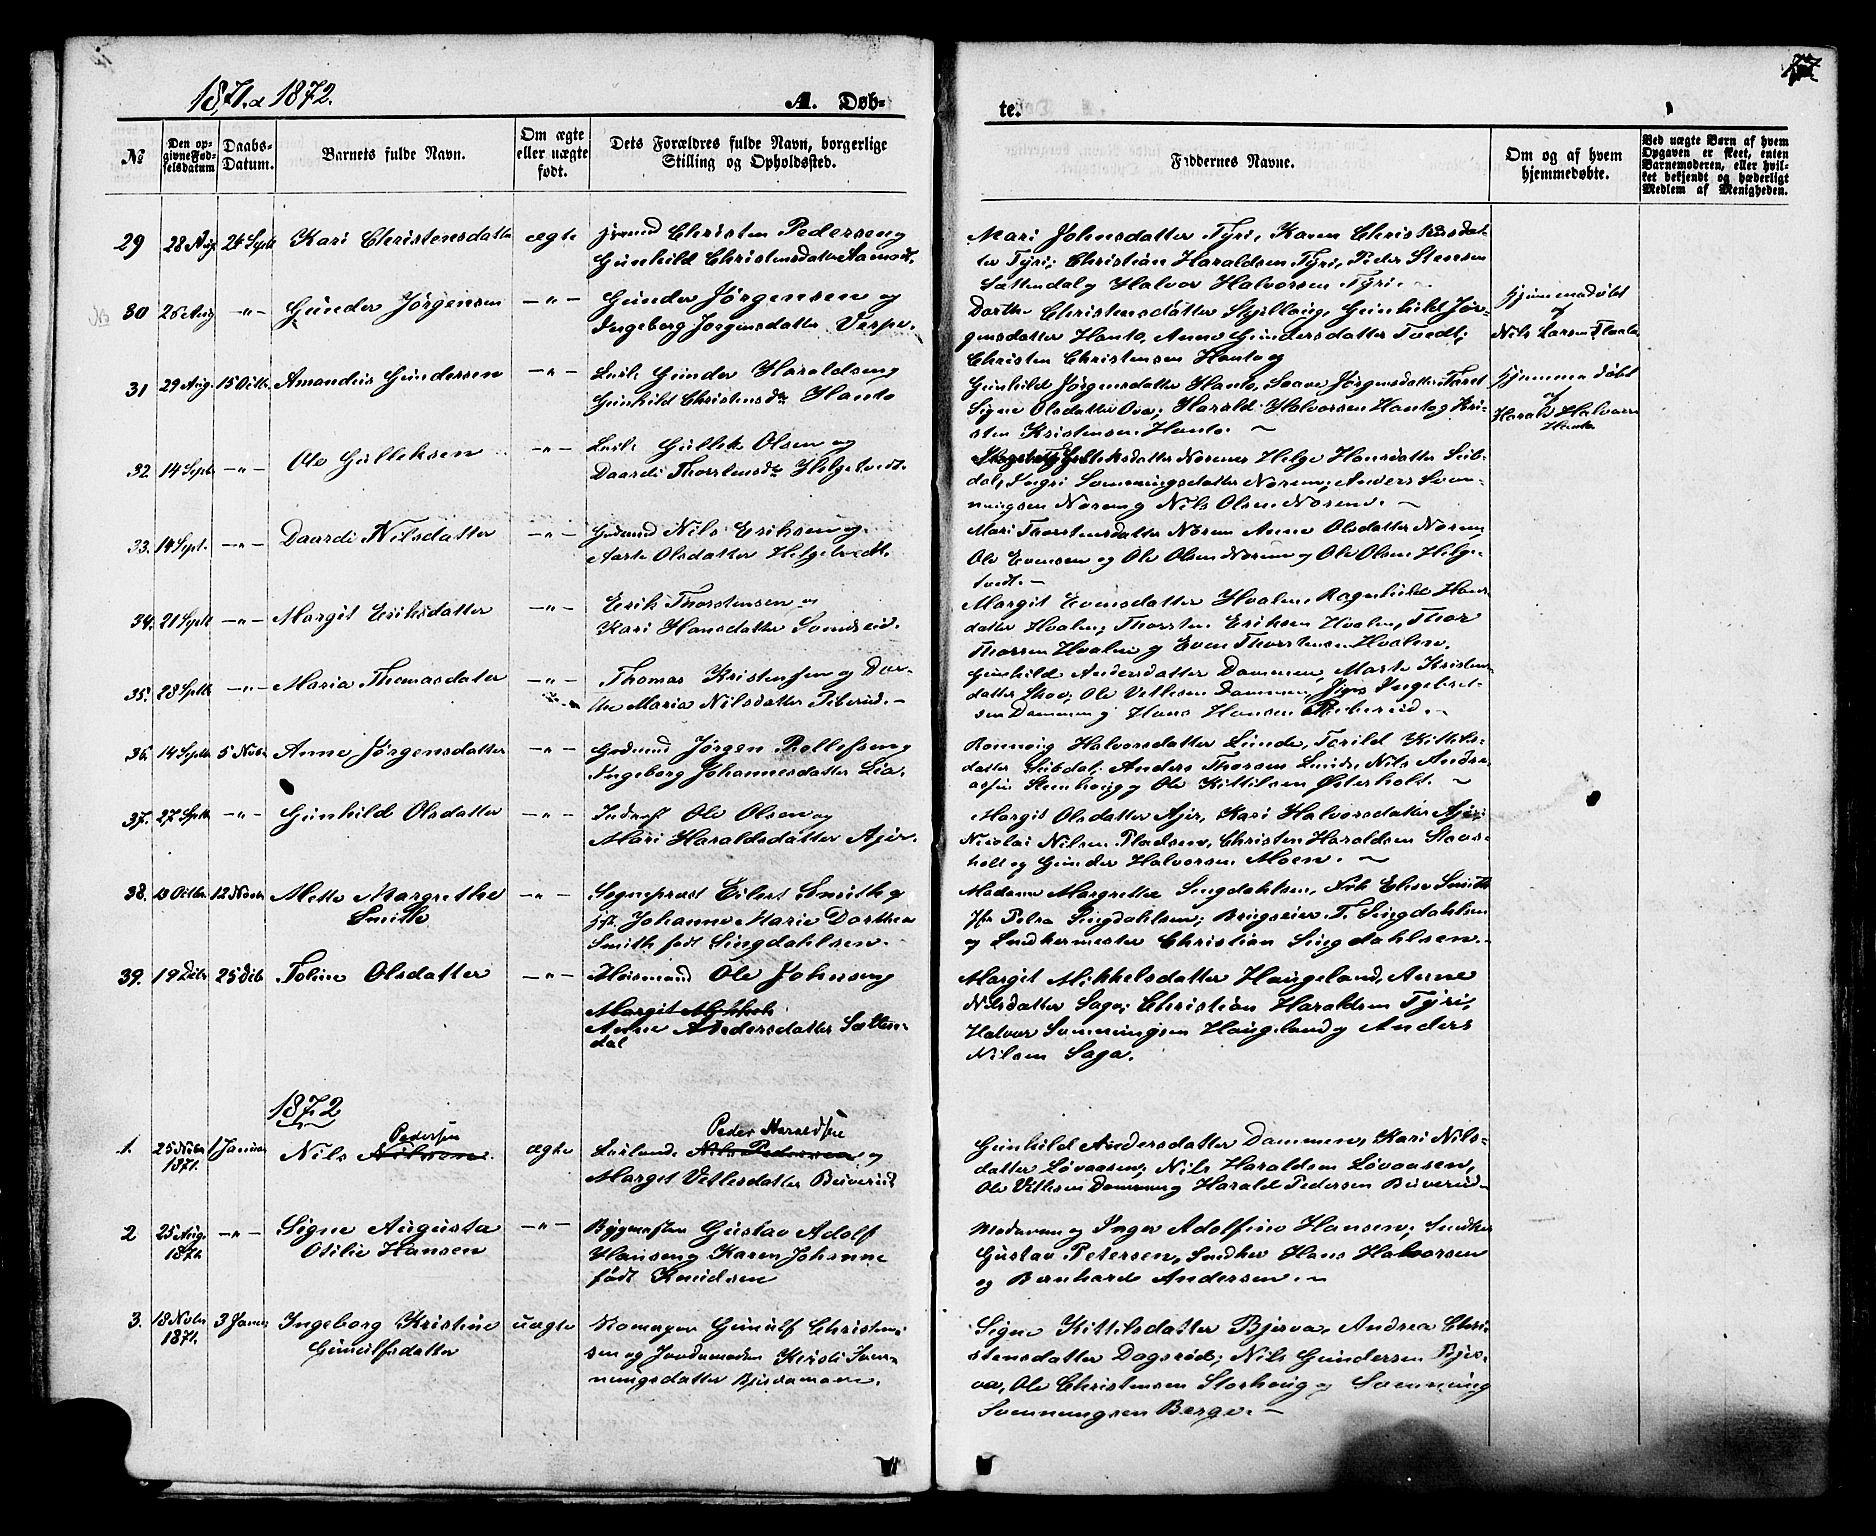 1871. & 1872.
A. Døb-
te.
77
№
Den op-
givne Fød-
selsdatum
Daabs-
Datum.
Barnets fulde Navn.
Om ægte
eller uægte
født.
Dets Forældres fulde Navn, borgerlige
Stilling og Opholdssted.
Faddernes Navne.
Om og af hvem
hjemmedøbte.
Ved uægte Børn af hvem
Opgaven er skeet, enten
Barnemoderen, eller hvil-
ket bekjendt og hæderligt
Medlem af Menigheden.
29 28 Aug 24 Septb Kari Christensdatter ægte Christen Pedersen og
Gunhild Christensdatter Aamodt.
Mari Johnsdatter Tyri, Karen Christensdat-
ter Tyri; Christian Haraldsen Tyri, Peder Stensen
Sattendal og Halvor Halvorsen Tyri.
30 26 Aug -"- Gunder Jørgensen -"- Gunder Jørgensen og
Ingeborg Jørgensdatter Verpe.
Dorthe Christensdatter Gunhild Jør-
gensdatter Hanto, Anne Gundersdatter Tvedt;
Christen Christensen Hanto og
Hjemmedøbt
af
Nils Larsen
31 29 Aug. 15 Octb. Amandus Gundersen -"- Gunder Haraldsen og
Gunhild Christensdr Hanto
Gunhild Jørgensdatter Hanto, Jørgensdatter
Signe Olsdatter Harald Halvorsen Hanto og Kri-
sten Kristensen Hanto.
Hjemmedøbt
af
Harald Halvorsen
Hanto
32. 14 Septb -"- Ole Gulleksen -"- Gullek Olsen og
Daardi Thorstensdr Helgetvedt.
Gulleksdatter Noreme Helge Hansdatter
Sonnungsdatter Norem; Anders Søn-
nungsen Norem og Nils Olsen Norem.
33. 14 Sept. -"- Daardi Nilsdatter -"- Nils Eriksen og
Aaste Olsdatter Helgetvedt.
Mari Thorstensdatter Norem Anne Olsdatter Norem
Ole Evensen og Ole Olsen Norem og Ole Olsen Helge-
tvedt.
34. 21 Septb -"- Margit Eriksdatter -"- Erik Thorstensen og
Kari Hansdatter
Margit Evensdatter Hvalen, Ragnhild Hans-
datter Hvalen; Thorsten Eriksen Hvalen, Thor
Hvalen og Even Thorstensen Hvalen.
35. 28 Septb -"- Maria Thomasdatter -"- Thomas Kristensen og Dor-
the Maria Nilsdatter
Gunhild Andersdatter Dammen, Marte Kristens-
datter Skov; Ole Vetlesen Dammen, Ingebret-
sen Dammen og Hans Hansen
36. 14 Septb 5 Novb. Anne Jørgensdatter -"- Jørgen Rollefsen og
Ingeborg Johannesdatter Lia.
Rønnoug Halvorsdatter Lunde, Torild Kittels-
datter Anders Thorsen Lunde, Nils Andre-
assen Stenhoug og Ole Kittilsen Østerholt.
37. 27 Septb -"- Gunhild Olsdatter -"- Ole Olsen og
Mari Haraldsdatter Ajer.
Margit Olsdatter Ajer, Kari Halvorsdatter Ajer;
Nicolai Nilsen Pladsen, Christen Haraldsen Staas-
holt og Gunder Halvorsen Moen.
38. 13 Octbr 12 Novbr Mette Margrethe
Smith -"- Sogneprest Eilert Smith og
Johanne Marie Dorthea
Smith født Singdahlsen.
Madame Margrethe Singdahlsen, Frk Elise Smith
Petra Singdahlsen; Brugseier T. Singdahlsen
og Snedkermester Christian Singdahlsen.
39. 19 Debr 25 Deb Toline Olsdatter -"- Huusmand Ole Johnsen og
Margit Mikkels
Anne Andersdatter Satten-
dal
Margit Mikkelsdatter Haugeland, Anne
Nilsdatter Saga; Christian Haraldsen Tyri,
Halvor Sønnungsen Haugeland og Anders
Nilsen Saga.
1872
1. 25 Novbr
1871. 1 Januar Nils Nilssen Pedersen ægte Nils Pedersen Peder Haraldsen og
Marget Vetlesdatter Buverud
Gunhild Andersdatter Dammen, Kari Nils-
datter Løvaasen; Nils Haraldsen Løvaasen,
Ole Vetlesen Dammen og Harald Pedersen Buverud
2 25 Aug.
1871. -"- Signe Augusta
Otilie Hansen -"- Bygmester Gustav Adolf
Hansen og Karen Johanne
født Knudsen
Moderen og Inger Adolfine Hansen; Snedker
Gustav Petersen, Snedker Hans Halvorsen
og Bernhard Andersen.
3. 18 Novbr
1871. 3 Januar Ingeborg Kristine
Gunulfsdatter uægte Gunulf Christen-
sen og Kirsti Søn-
nungsdatter
Signe Kittelsdatter Bjerva, Andrea Chri-
stensdatter Dagsrud; Nils Gundersen Bjer-
va, Ole Christensen Storhoug og Sønnung
Sønnungsen Berge.